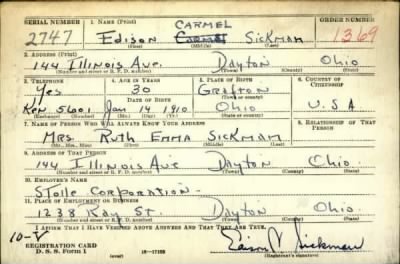 SERIAL NUMBER 1. NAME (Print) CARMEL ORDER NUMBER
2747 EDISON CARMET SICKMAN 1369
(First) (Middle) (Last)
2. ADDRESS (Print)
144 ILLINOIS AVE. DAYTON OHIO
(Number and street or R. F. D. number) (Town) (County) (State)
3. TELEPHONE 4. AGE IN YEARS 5. PLACE OF BIRTH 6. COUNTRY OF CITIZENSHIP
Yes 30 GRAFTON
(Town or county)
DATE OF BIRTH
KEN. 5601 JAN 14 1910 OHIO U.S.A
7. NAME OF PERSON WHO WILL ALWAYS KNOW YOUR ADDRESS 8. RELATIONSHIP OF THAT PERSON
MRS. RUTH EMMA SICKMAN
(Mr., Mrs., Miss) (First) (Middle) (Last)
9. ADDRESS OF THAT PERSON
144 ILLINOIS AVE DAYTON OHIO.
(Number and street or R. F. D. number) (Town) (County) (State)
10. EMPLOYER'S NAME
STOLLE CORPORATION-
11. PLACE OF EMPLOYMENT OR BUSINESS
1238 KAY ST. DAYTON OHIO.
(Number and street or R. F. D. number) (Town) (County) (State)
I AFFIRM THAT I HAVE VERIFIED ABOVE ANSWERS AND THAT THEY ARE TRUE.
REGISTRATION CARD
D. S. S. Form 1 (over) Sickman
(Registrant's signature)